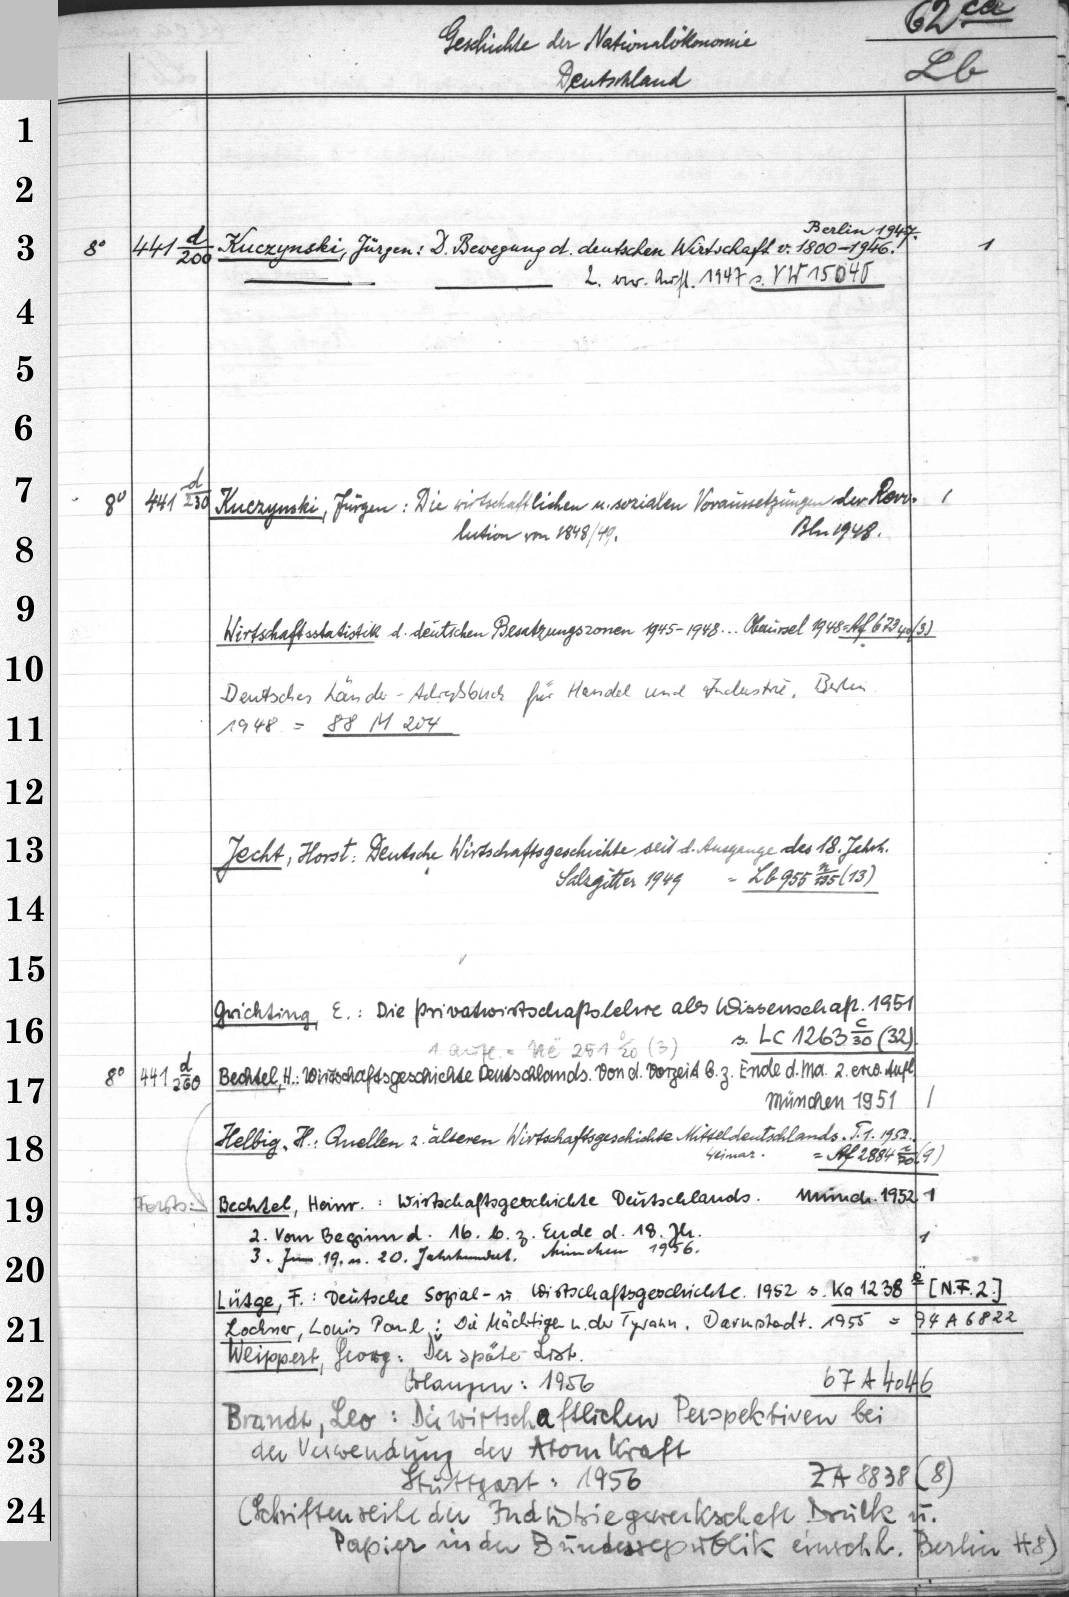 62 ca
Geschichte der Nationalökonomie
Deutschland
Lb
1
2
Berlin 1947.
3 8° 441 d/200 Kuczynski, Jürgen: D. Bewegung d. deutschen Wirtschaft v. 1800-1946. 1
2. verb. Aufl. 1947 s. VW 15040
4
5
6
7 8° 441 d/230 Kuczynski, Jürgen: Die wirtschaftlichen u. sozialen Voraussetzungen der Revo- 1
lution von 1848/49. Bln 1948.
8
9
Wirtschaftsstatistik d. deutschen Besatzungszonen 1945-1948... Oberursel 1948 = Af 673 40(3)
10
Deutsches Länder-Adreßbuch für Handel und Industrie, Berlin
11 1948 = 88 M 204
12
13 Jecht, Horst: Deutsche Wirtschaftsgeschichte seit d. Ausgange des 18. Jahrh.
Salzgitter 1949 = Lb 955 n/135 (13)
14
15
Grichting, E.: Die Privatwirtschaftslehre als Wissenschaft. 1951
16 s. LC 1263 c/30 (32)
1. Aufl. = 251 /20 (3)
17 8° 441 d/260 Bechtel, H.: Wirtschaftsgeschichte Deutschlands. Von d. Vorzeit b. z. Ende d. Ma. 2. erw. Aufl
München 1951 1
18 Helbig, H.: Quellen z. älteren Wirtschaftsgeschichte Mitteldeutschlands. T. 1. 1952.
Weimar. = Af 2884 /70 (9)
19 Forts: Bechtel, Heinr.: Wirtschaftsgeschichte Deutschlands. Münch. 1952 1
2. Vom Beginn d. 16. b. z. Ende d. 18. Jh. 1
20 3. Im 19. u. 20. Jahrhundert. München 1956.
Lütge, F.: Deutsche Sozial- u Wirtschaftsgeschichte. 1952 s. Ka 1238 [N.F. 2.]
21 Lochner, Louis Paul: Die Mächtigen u. der Tyrann. Darmstadt. 1955 = 94 A 6822
Weippert, Georg: Der späte List.
22 Erlangen: 1956 67 A 4046
Brandt, Leo: Die wirtschaftlichen Perspektiven bei
23 der Verwendung der Atomkraft
Stuttgart: 1956 ZA 8838 (8)
24 (Schriftenreihe der Industriegewerkschaft Druck u.
Papier in der Bundesrepublik einschl. Berlin H 8)